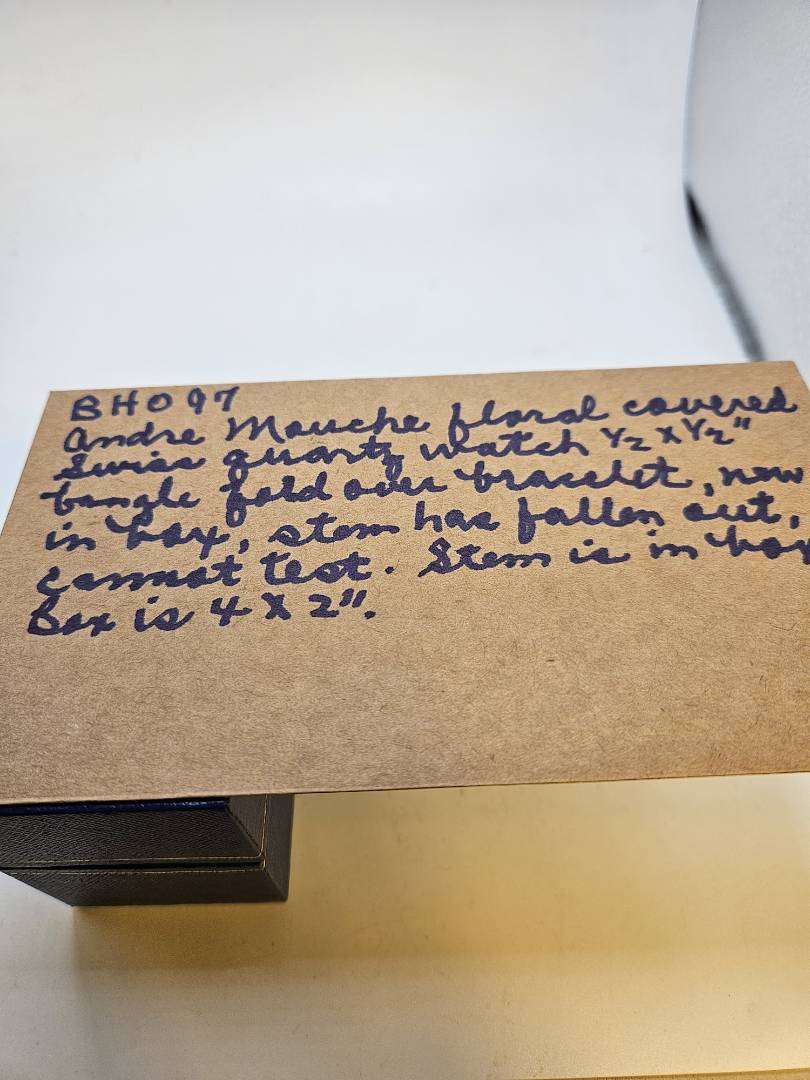 BH097
Andre Mouche floral covered
Swiss quartz watch 1/2 x 1/2"
bangle fold over bracelet, now
in box, stem has fallen out,
cannot test. Stem is in box
Box is 4 x 2".